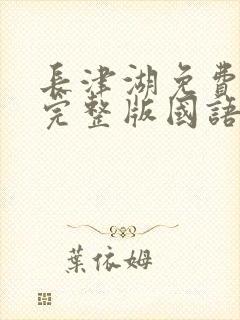 長津湖免費
完整版國語
葉依姆